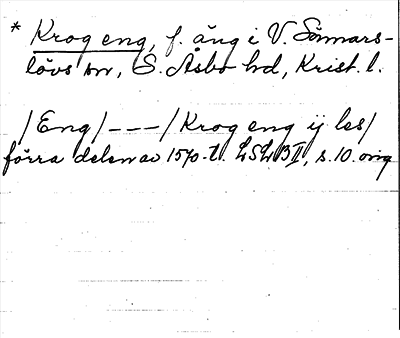 * Krog eng, f. äng i V. Sönnars-
lövs sn, S. Åsbo hd, Krist. l.
/Eng/ --- /Krog eng ij les/
förra delen av 1570-t. LSLB II, s. 10. orig